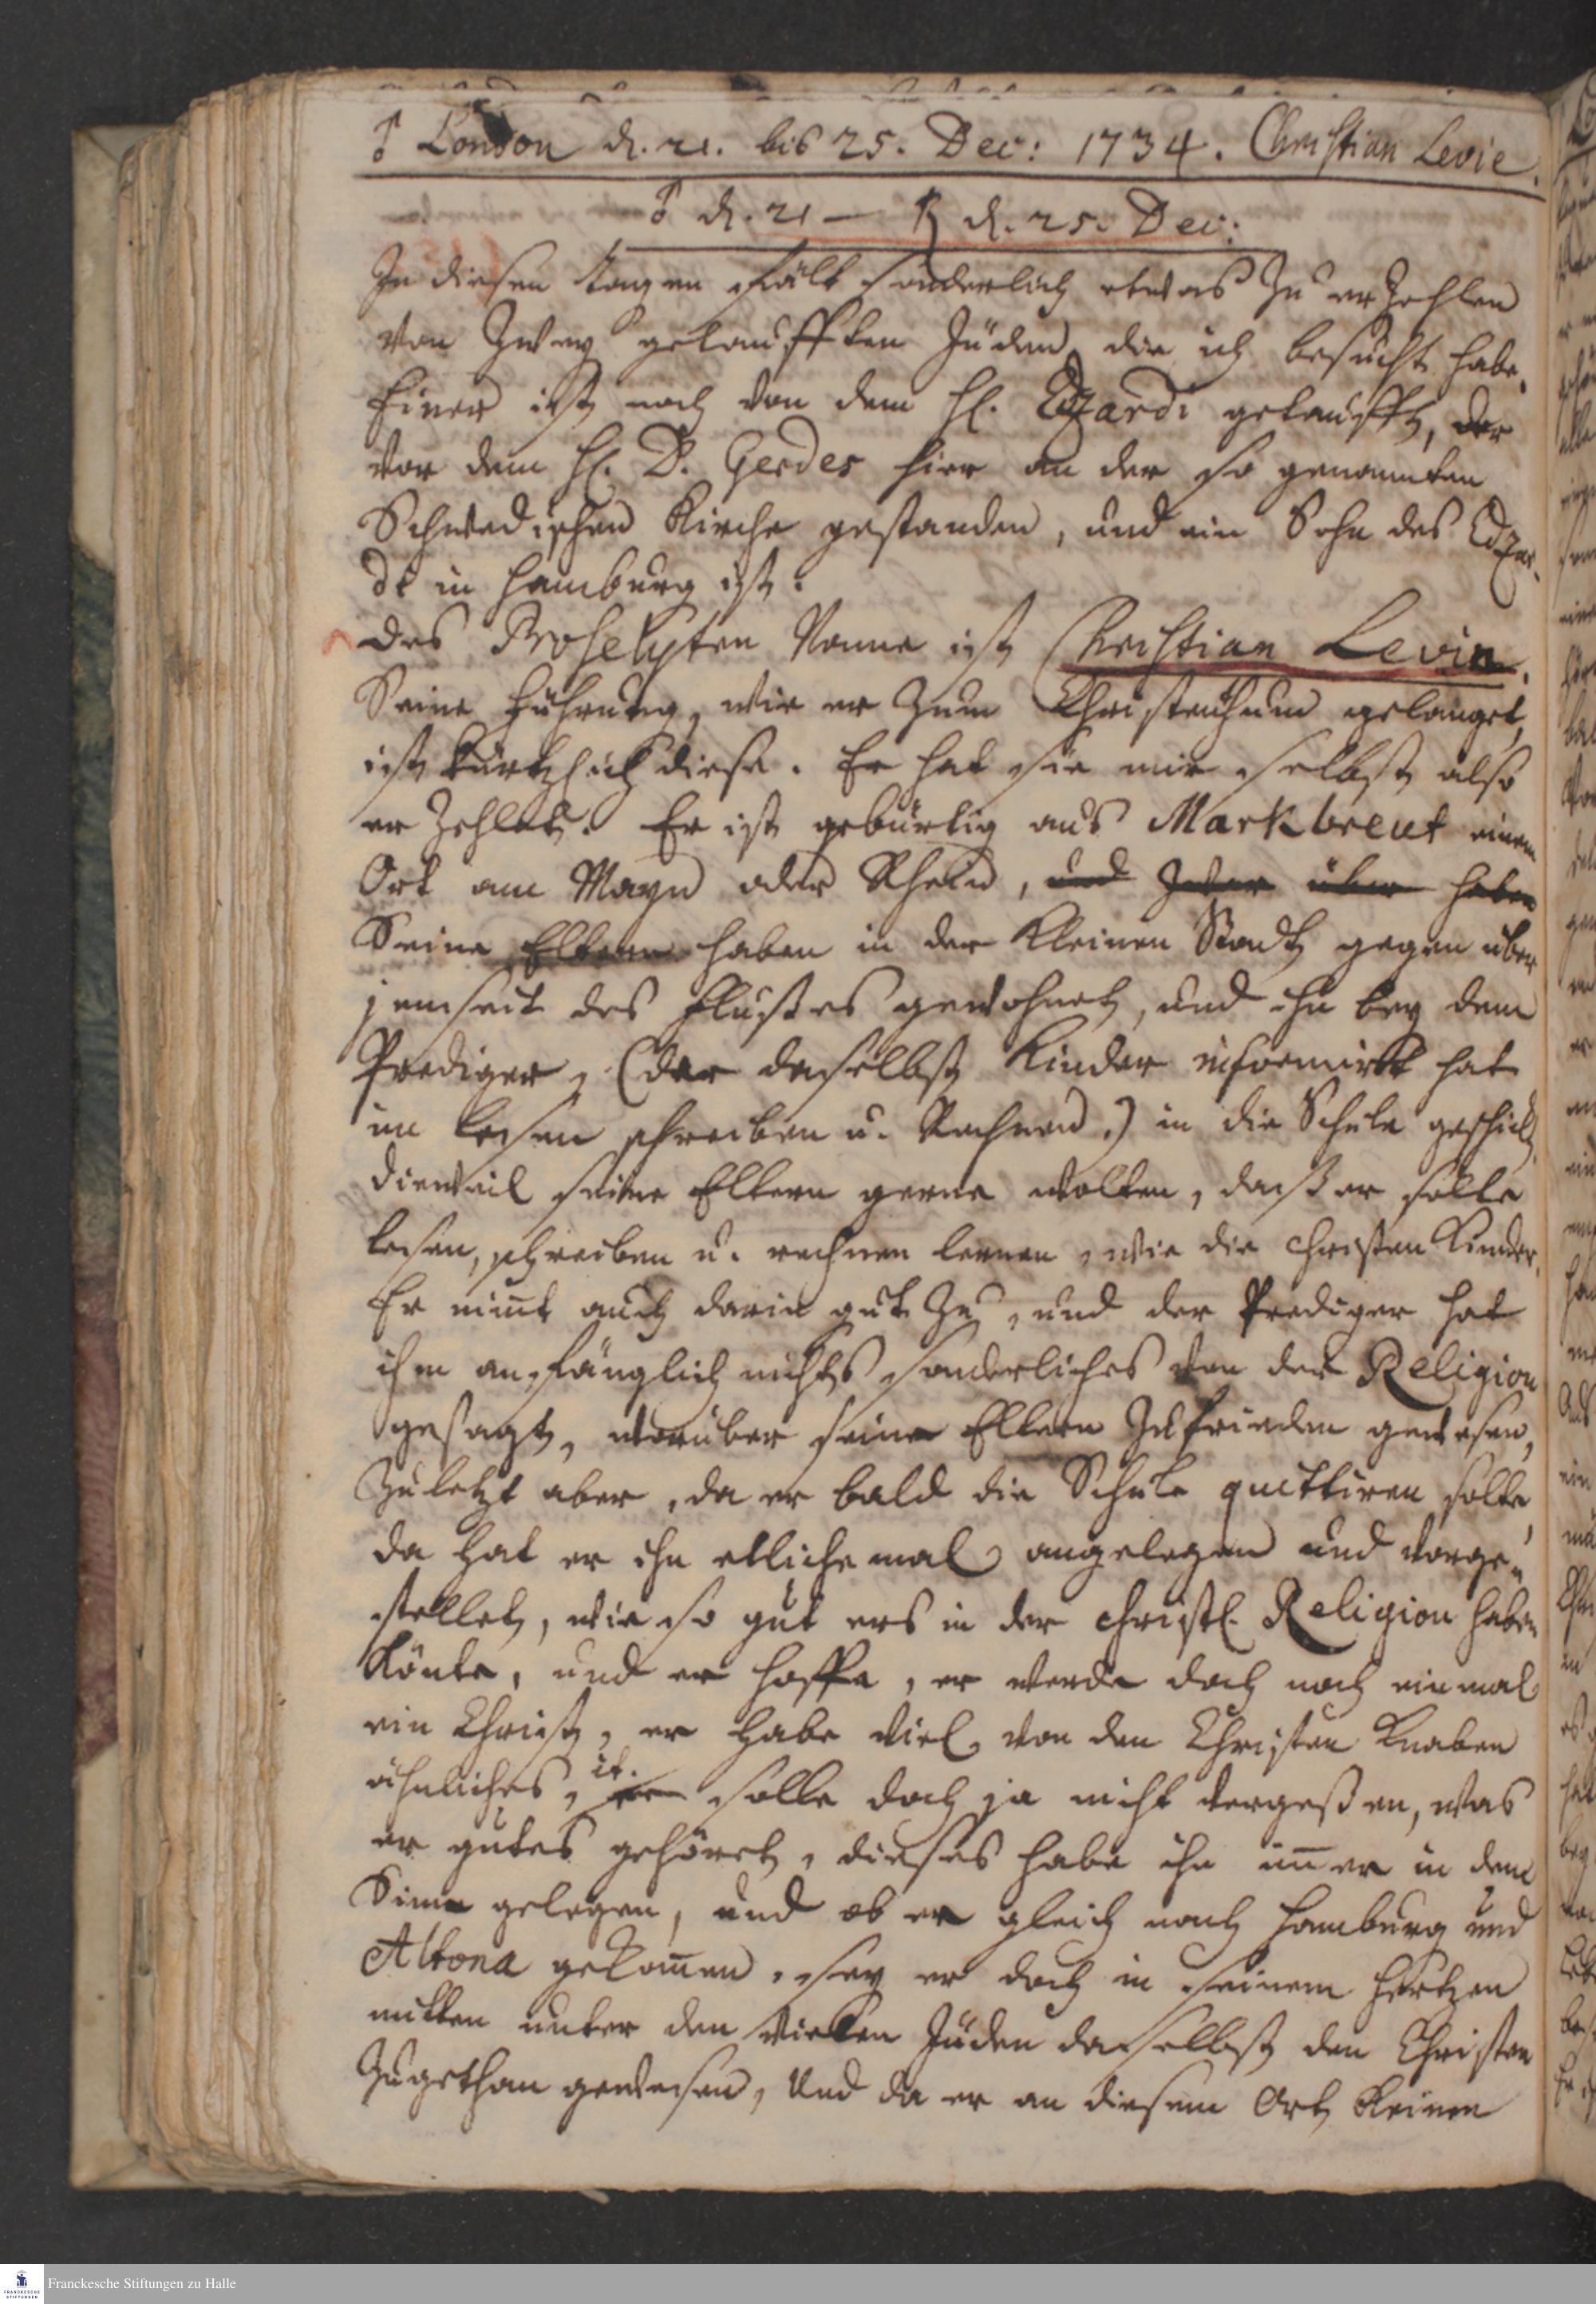 ♂ London d. 21. bis 25. Dec: 1734. Christian Levie.
♂ d. 21 — ♄ d. 25. Dec:
In diesen tagen fält sonderlich etwas zu erzehlen
von zwey getaufften Juden, die ich besucht habe.
Einer ist noch von dem H. Edzardi getaufft, der
vor dem H. D. Gerdes hier an der so genannten
Schwedischen Kirche gestanden, und ein Sohn des Edzar-
di in Hamburg ist.
Des Proselyten Name ist Christian Levin.
Seine Führung, wie er zum Christenthum gelanget,
ist kürtzlich diese. Er hat sie mir selbst also
erzehlet. Er ist gebürtig aus Markbreut einem
Ort am Mayn oder Rhein, und zwar über haben
Seine Eltern haben in der kleinen Stadt gegen über
jenseit des Flußes gewohnet, und ihn bey dem
Prediger, (der daselbst Kinder informirt hat
im lesen schreiben u. Rechnen.) in die Schule geschickt,
dieweil seine Eltern gerne wolten, daß er solle
lesen, schreiben u. rechnen lernen, wie die christen Kinder.
Er nimt auch darin gut zu, und der Prediger hat
ihm anfänglich nichts sonderliches von der Religion
gesagt, worüber seine Eltern zufrieden gewesen,
Zuletzt aber, da er bald die Schule quittiren solte,
da hat er ihn etliche mal angelegen und vorge-
stellet, wie so gut ers in der christl. Religion haben
könte, und er hoffe, er werde doch noch einmal
ein Christ, er habe viel von den Christen Knaben
ähnliches, it. er solle doch ja nicht vergeßen, was
er gutes gehöret, dieses habe ihn im̅er in dem
Sinn gelegen, und ob er gleich nach Hamburg und
Altona gekom̅en, sey er doch in seinem Hertzen
mitten unter den vielen Juden daselbst den Christen
zugethan gewesen, Und da er an diesem Ort keinen
Franckesche Stiftungen zu Halle